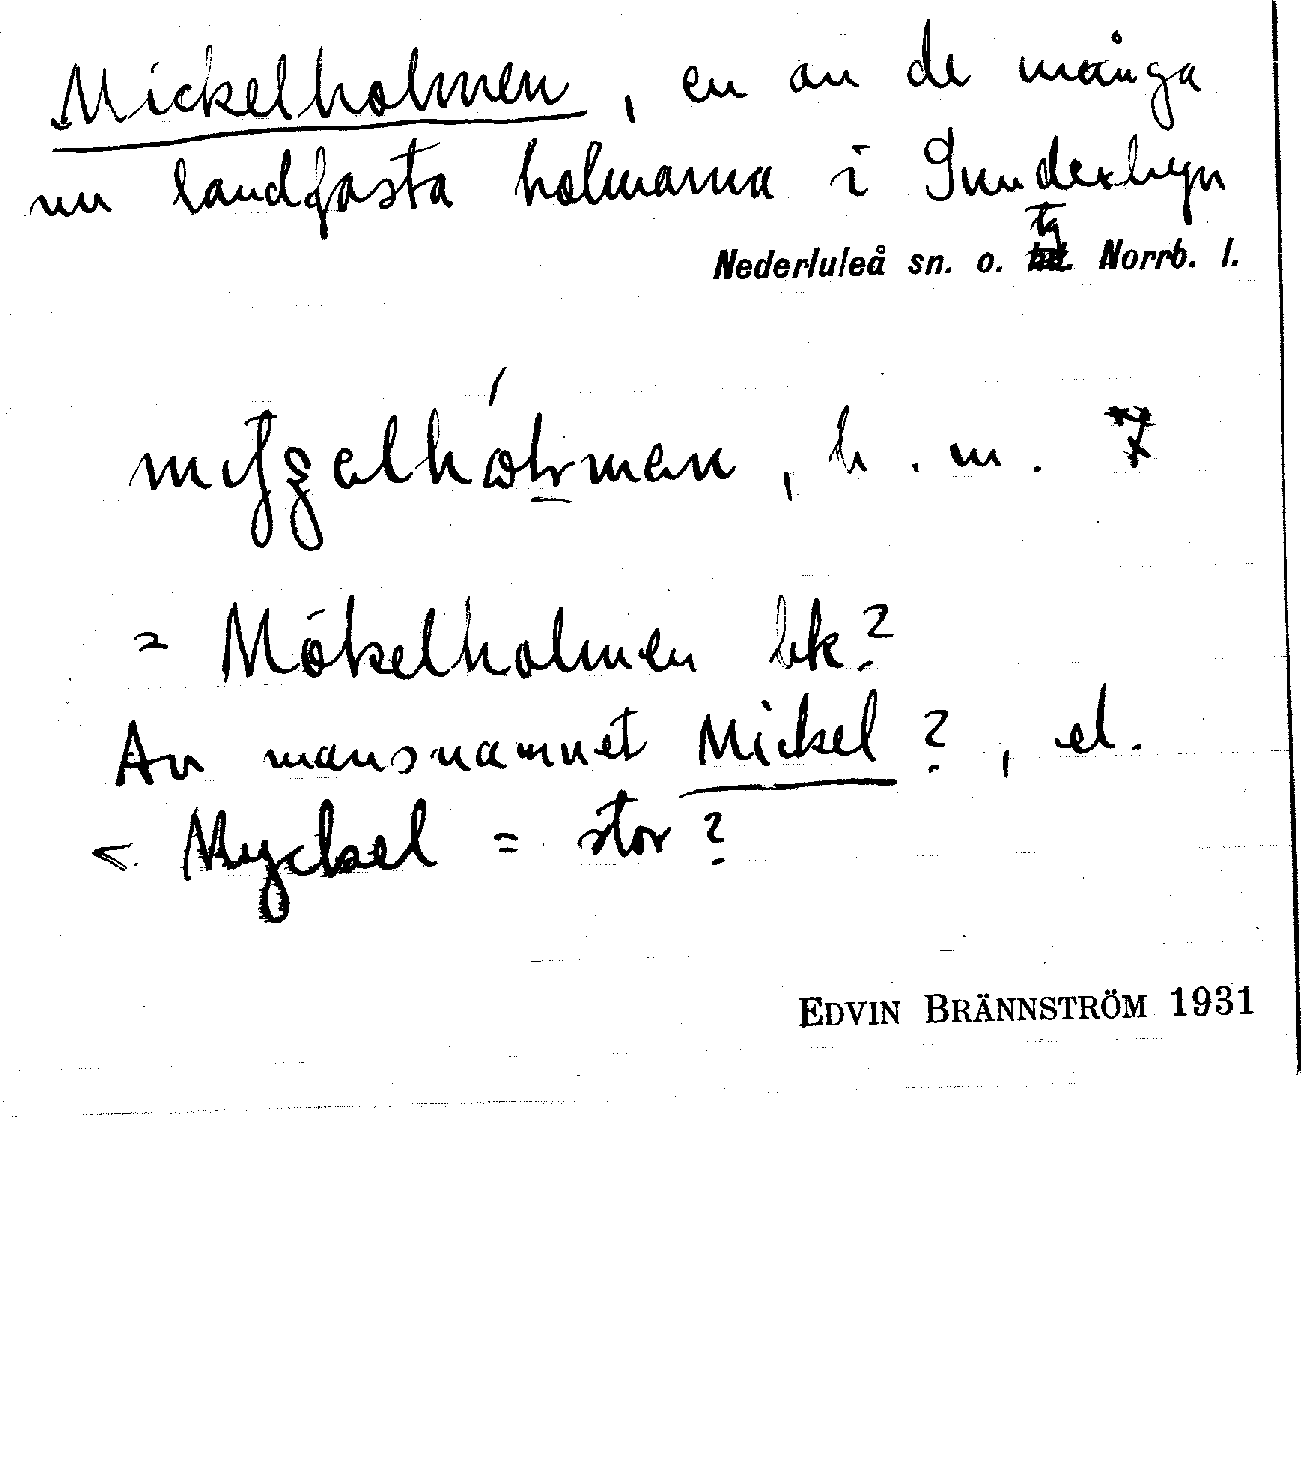 Mickelholmen, en av de många
nu landfasta holmarna i Sunderbyn
Nederluleå sn. o. tg Norrb. l.
h. m. 7
= Mökelholmen bk?
Av mansnamnet Mickel?, el.
< Myckel = stor?
EDVIN BRÄNNSTRÖM 1931